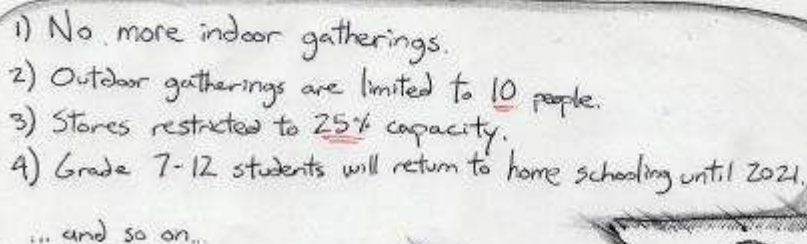 1) No more indoor gatherings.
2) Outdoor gatherings are limited to 10 people.
3) Stores restricted to 25% capacity.
4) Grade 7-12 students will return to home schooling until 2021.
... and so on...